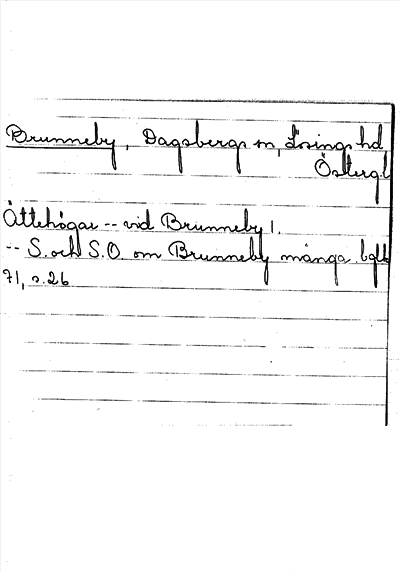 Brunneby, Dagsbergs sn, Lösings hd
Östergl
Ättehögar -- vid Brunneby 1.
-- S. och S.O. om Brunneby många.
71, s.26